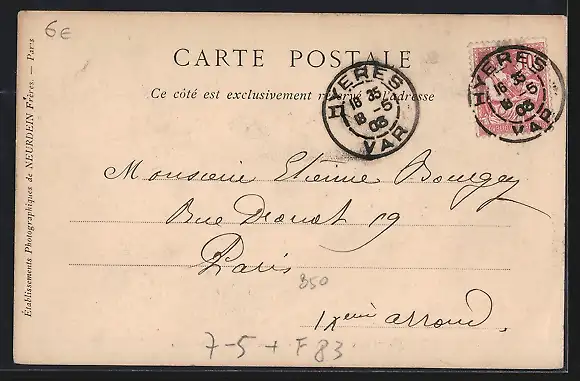 6€
CARTE POSTALE
Ce côté est exclusivement réservé à l'adresse
HYERES
16 35
18 -5
03
VAR
HYERES
16 35
18 -5
03
VAR
Monsieur Etienne Bourgey
Rue Drouot 19
Paris
350
IXème arrond.
7-5 + F 83
Établissements Photographiques de NEURDEIN Frères. — Paris